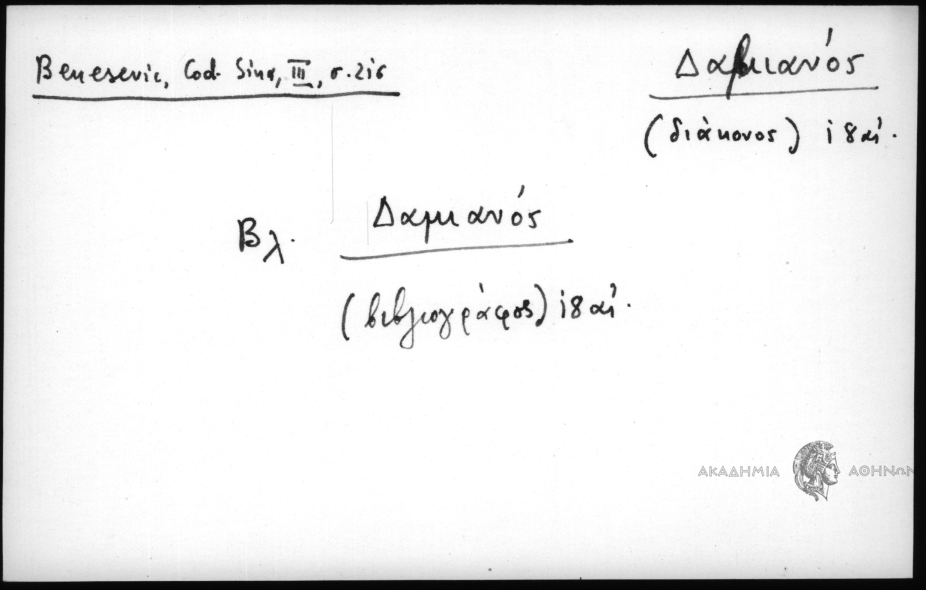 Benesevic, Cod. Sina, III, σ. 216
Δαμιανός
(διάκονος) ι8 αἰ.
Βλ. Δαμιανός
(βιβλιογράφος) ι8 αἰ.
ΑΚΑΔΗΜΙΑ ΑΘΗΝΩΝ